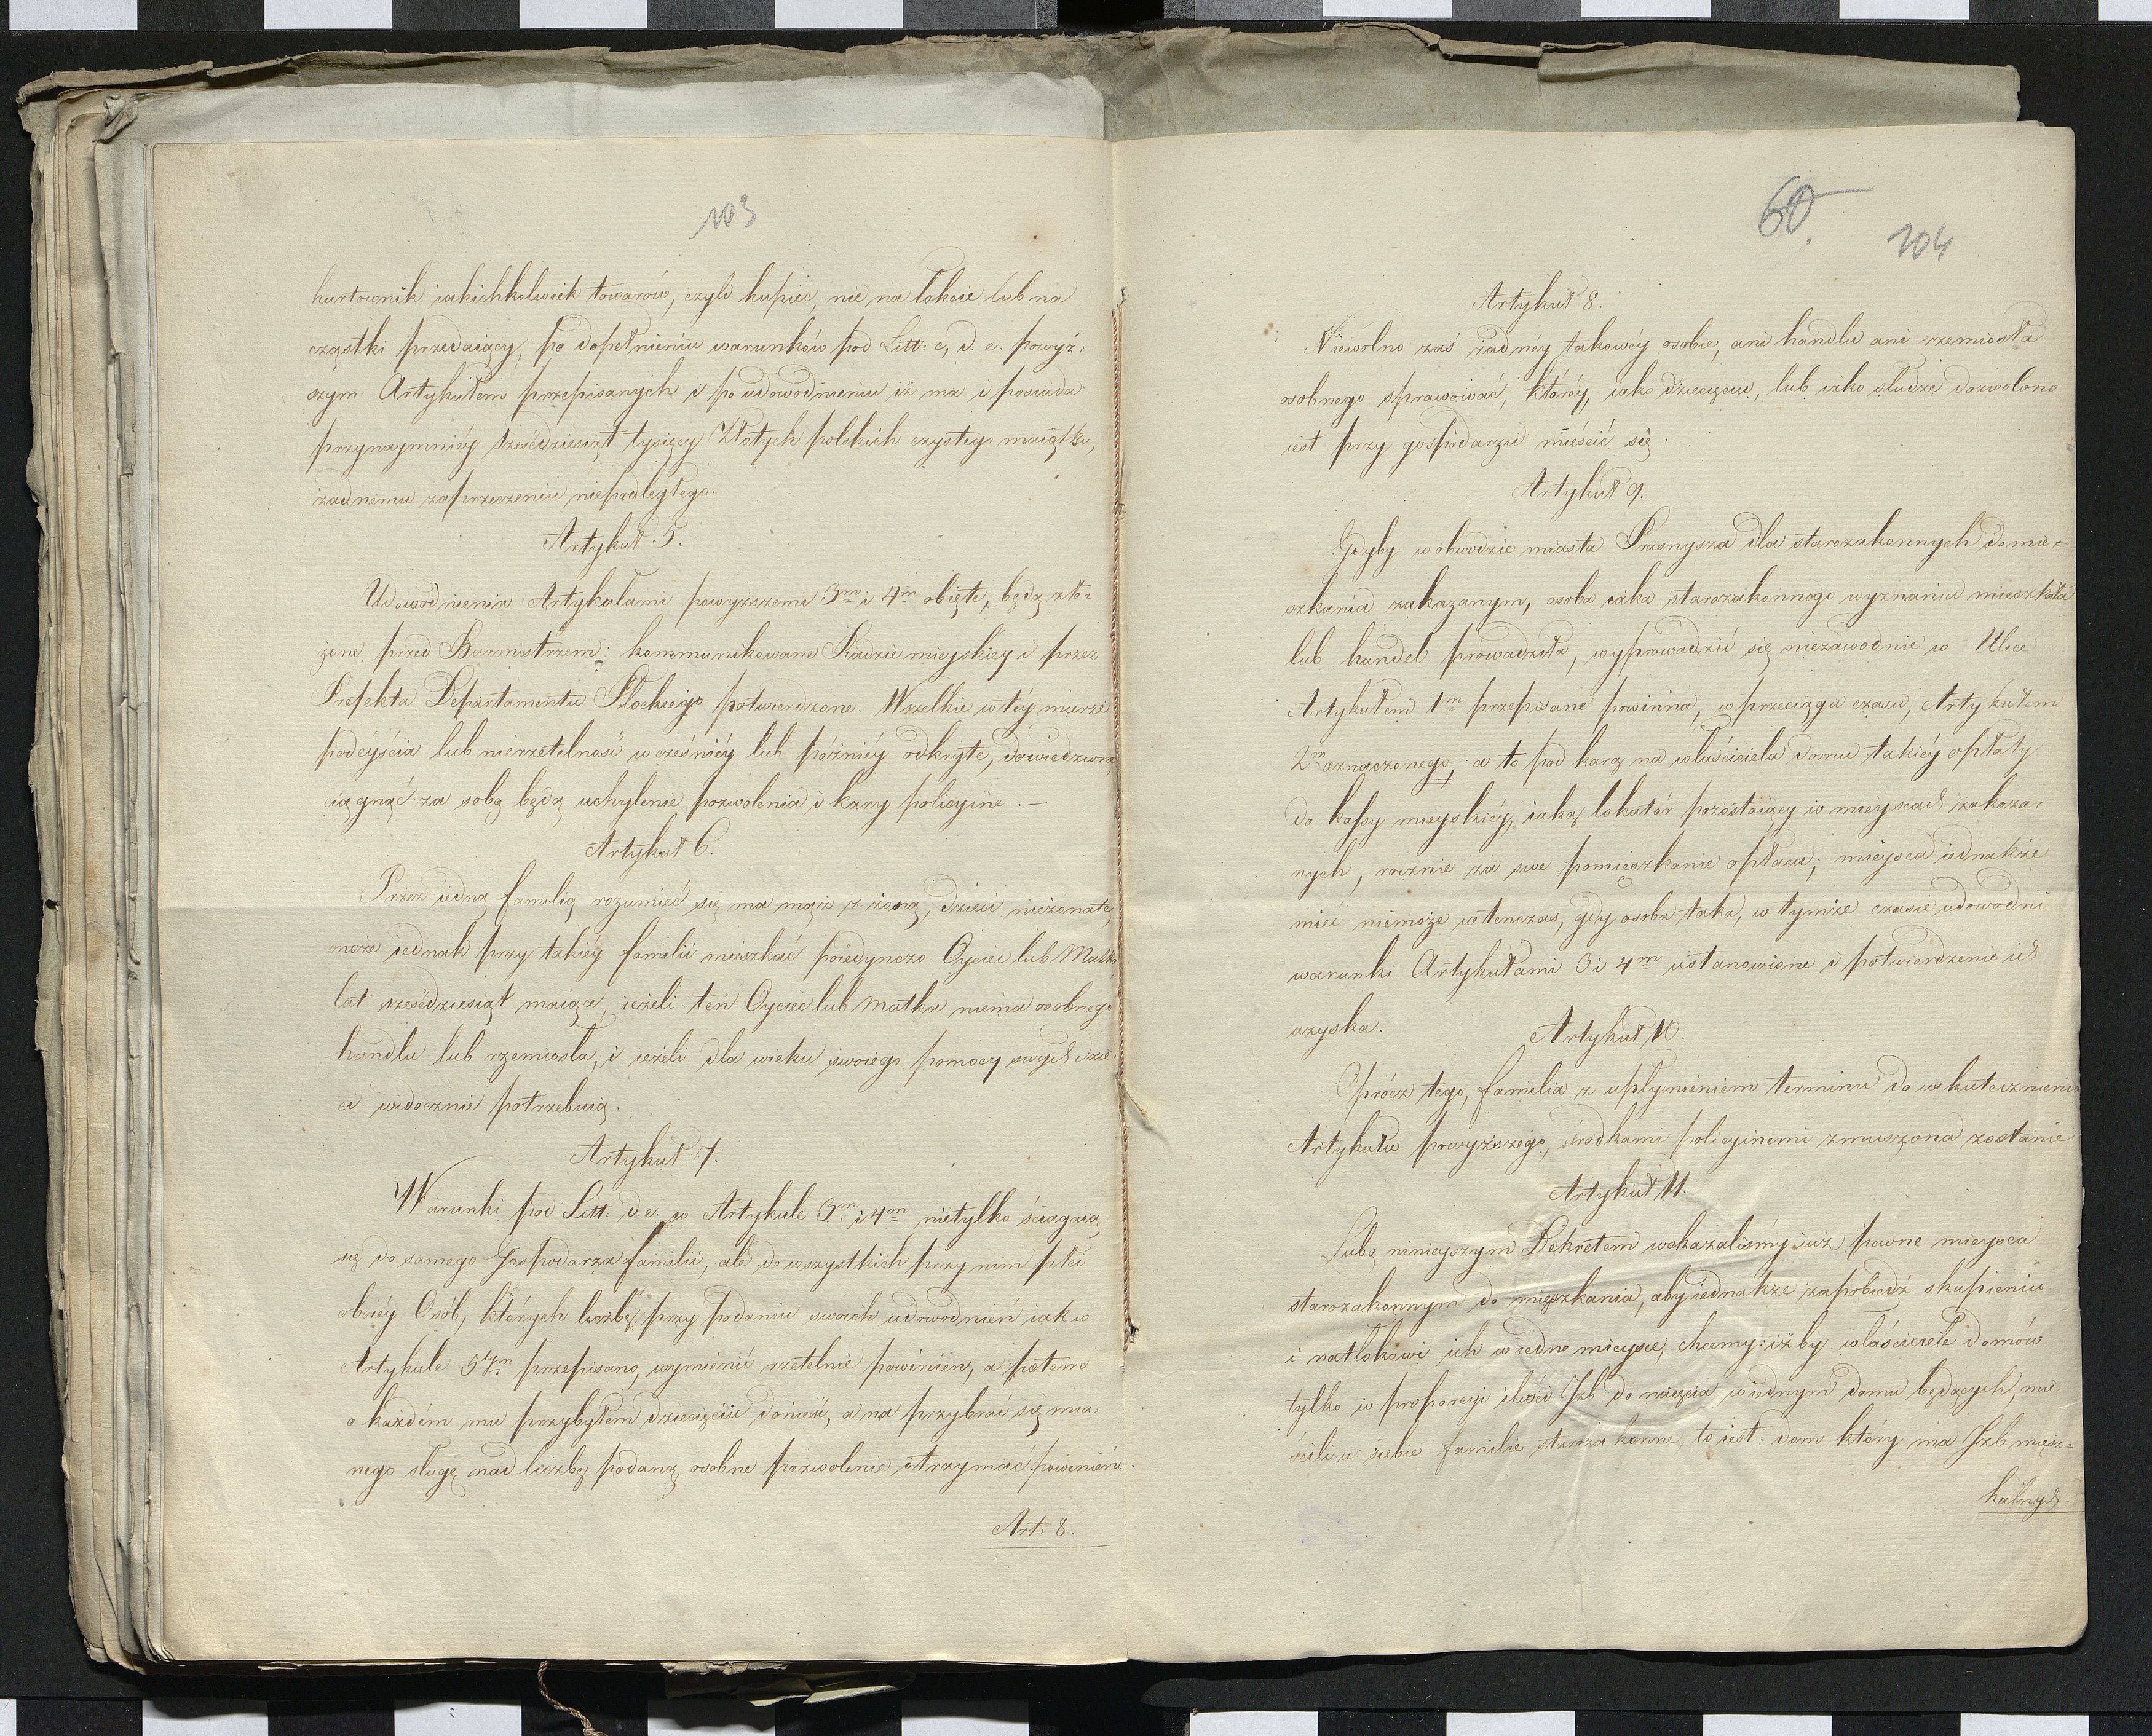 103
hurtownik iakichkolwiek towarów, czyli kupiec, nie na łokcie lub na
cząstki przedaiący, po dopełnieniu warunków pod Litt: c, d. e. powyż:
szym Artykułem przepisanych i po udowodnieniu iż ma i posiada
przynaymniéy sześćdziesiąt tysięcy Złotych polskich czystego maiątku,
żadnemu zaprzeczeniu niepodległego.
Artykuł 5.
Udowodnienia Artykułami powyższemi 3m i 4m obięte, będą zło=
żone przed Burmistrzem; kommunikowane Radzie mieyskiéy i przez
Prefekta Departamentu Płockiego potwierdzone. Wszelkie w téy mierze
podéyścia lub nierzetelność wcześniéy lub późniéy odkryte, dowiedzione
ciągnąć za sobą będą uchylenie pozwolenia i kary policyine. —
Artykuł 6.
Przez iedną familią rozumieć się ma mąż z żoną, dzieci nieżonate,
może iednak przy takiéy familii mieszkać poiedynczo Oyciec lub Matka
lat sześćdziesiąt maiące, ieżeli ten Oyciec lub Matka niema osobnego
handlu lub rzemiosła, i ieżeli dla wieku swoiego pomocy swych dzie
ci widocznie potrzebuią.
Artykuł 7.
Warunki pod Litt. d. e. w Artykule 3m i 4m nietylko ściągaią
się do samego Gospodarza familii, ale do wszystkich przy nim płci
oboiéy Osób, których liczbę przy podaniu swoich udowodnień iak w
Artykule 5tym przepisano, wymienić rzetelnie powinien, a potem
o każdém mu przybyłem dziecięciu donieść, a na przybrać się ma:
nego sługę nad liczbę podaną osobne pozwolenie otrzymać powinien.
Art. 8.
60
104
Artykuł 8.
Niewolno zaś żadnéy takowéy osobie, ani handlu ani rzemiosła
osobnego sprawować, któréy, iako dziecięciu, lub iako słudze dozwolono
iest przy gospodarzu mieścić się.
Artykuł 9.
Gdyby w obwodzie miasta Prasnysza dla starozakonnych do mie=
szkania zakazanym, osoba iaka starozakonnego wyznania mieszkała
lub handel prowadziła, wyprowadzić się niezawodnie w Ulice
Artykułem 1m przepisane powinna, w przeciągu czasu, Artykułem
2m oznaczonego, a to pod karą na właściciela domu takiéy opłaty
do kassy mieyskiéy, iaką lokatór pozostaiący w mieyscach zakaza:
nych, rocznie za swe pomieszkanie opłaca; mieysca iednakże
mieć niemoże wtenczas, gdy osoba taka, w tymże czasie udowodni
warunki Artykułami 3 i 4m ustanowione i potwierdzenie ich
uzyska.
Artykuł 10.
Oprócz tego, familia z upłynieniem terminu do uskutecznienia
Artykułu powyższego, środkami policyinemi zmuszona zostanie
Artykuł 11.
Lubo ninieyszym Dekretem wskazaliśmy iuż pewne mieysca
starozakonnym do mięszkania, aby iednakże zapobiedz skupieniu
i natłokowi ich w iedno mieysce, chcemy: iżby właściciele domów
tylko w proporcyi ilości Izb do naięcia w iednym domu będących, mie
ścili u siebie familie starozakonne, to iest: dom który ma Izb miesz=
kalnych